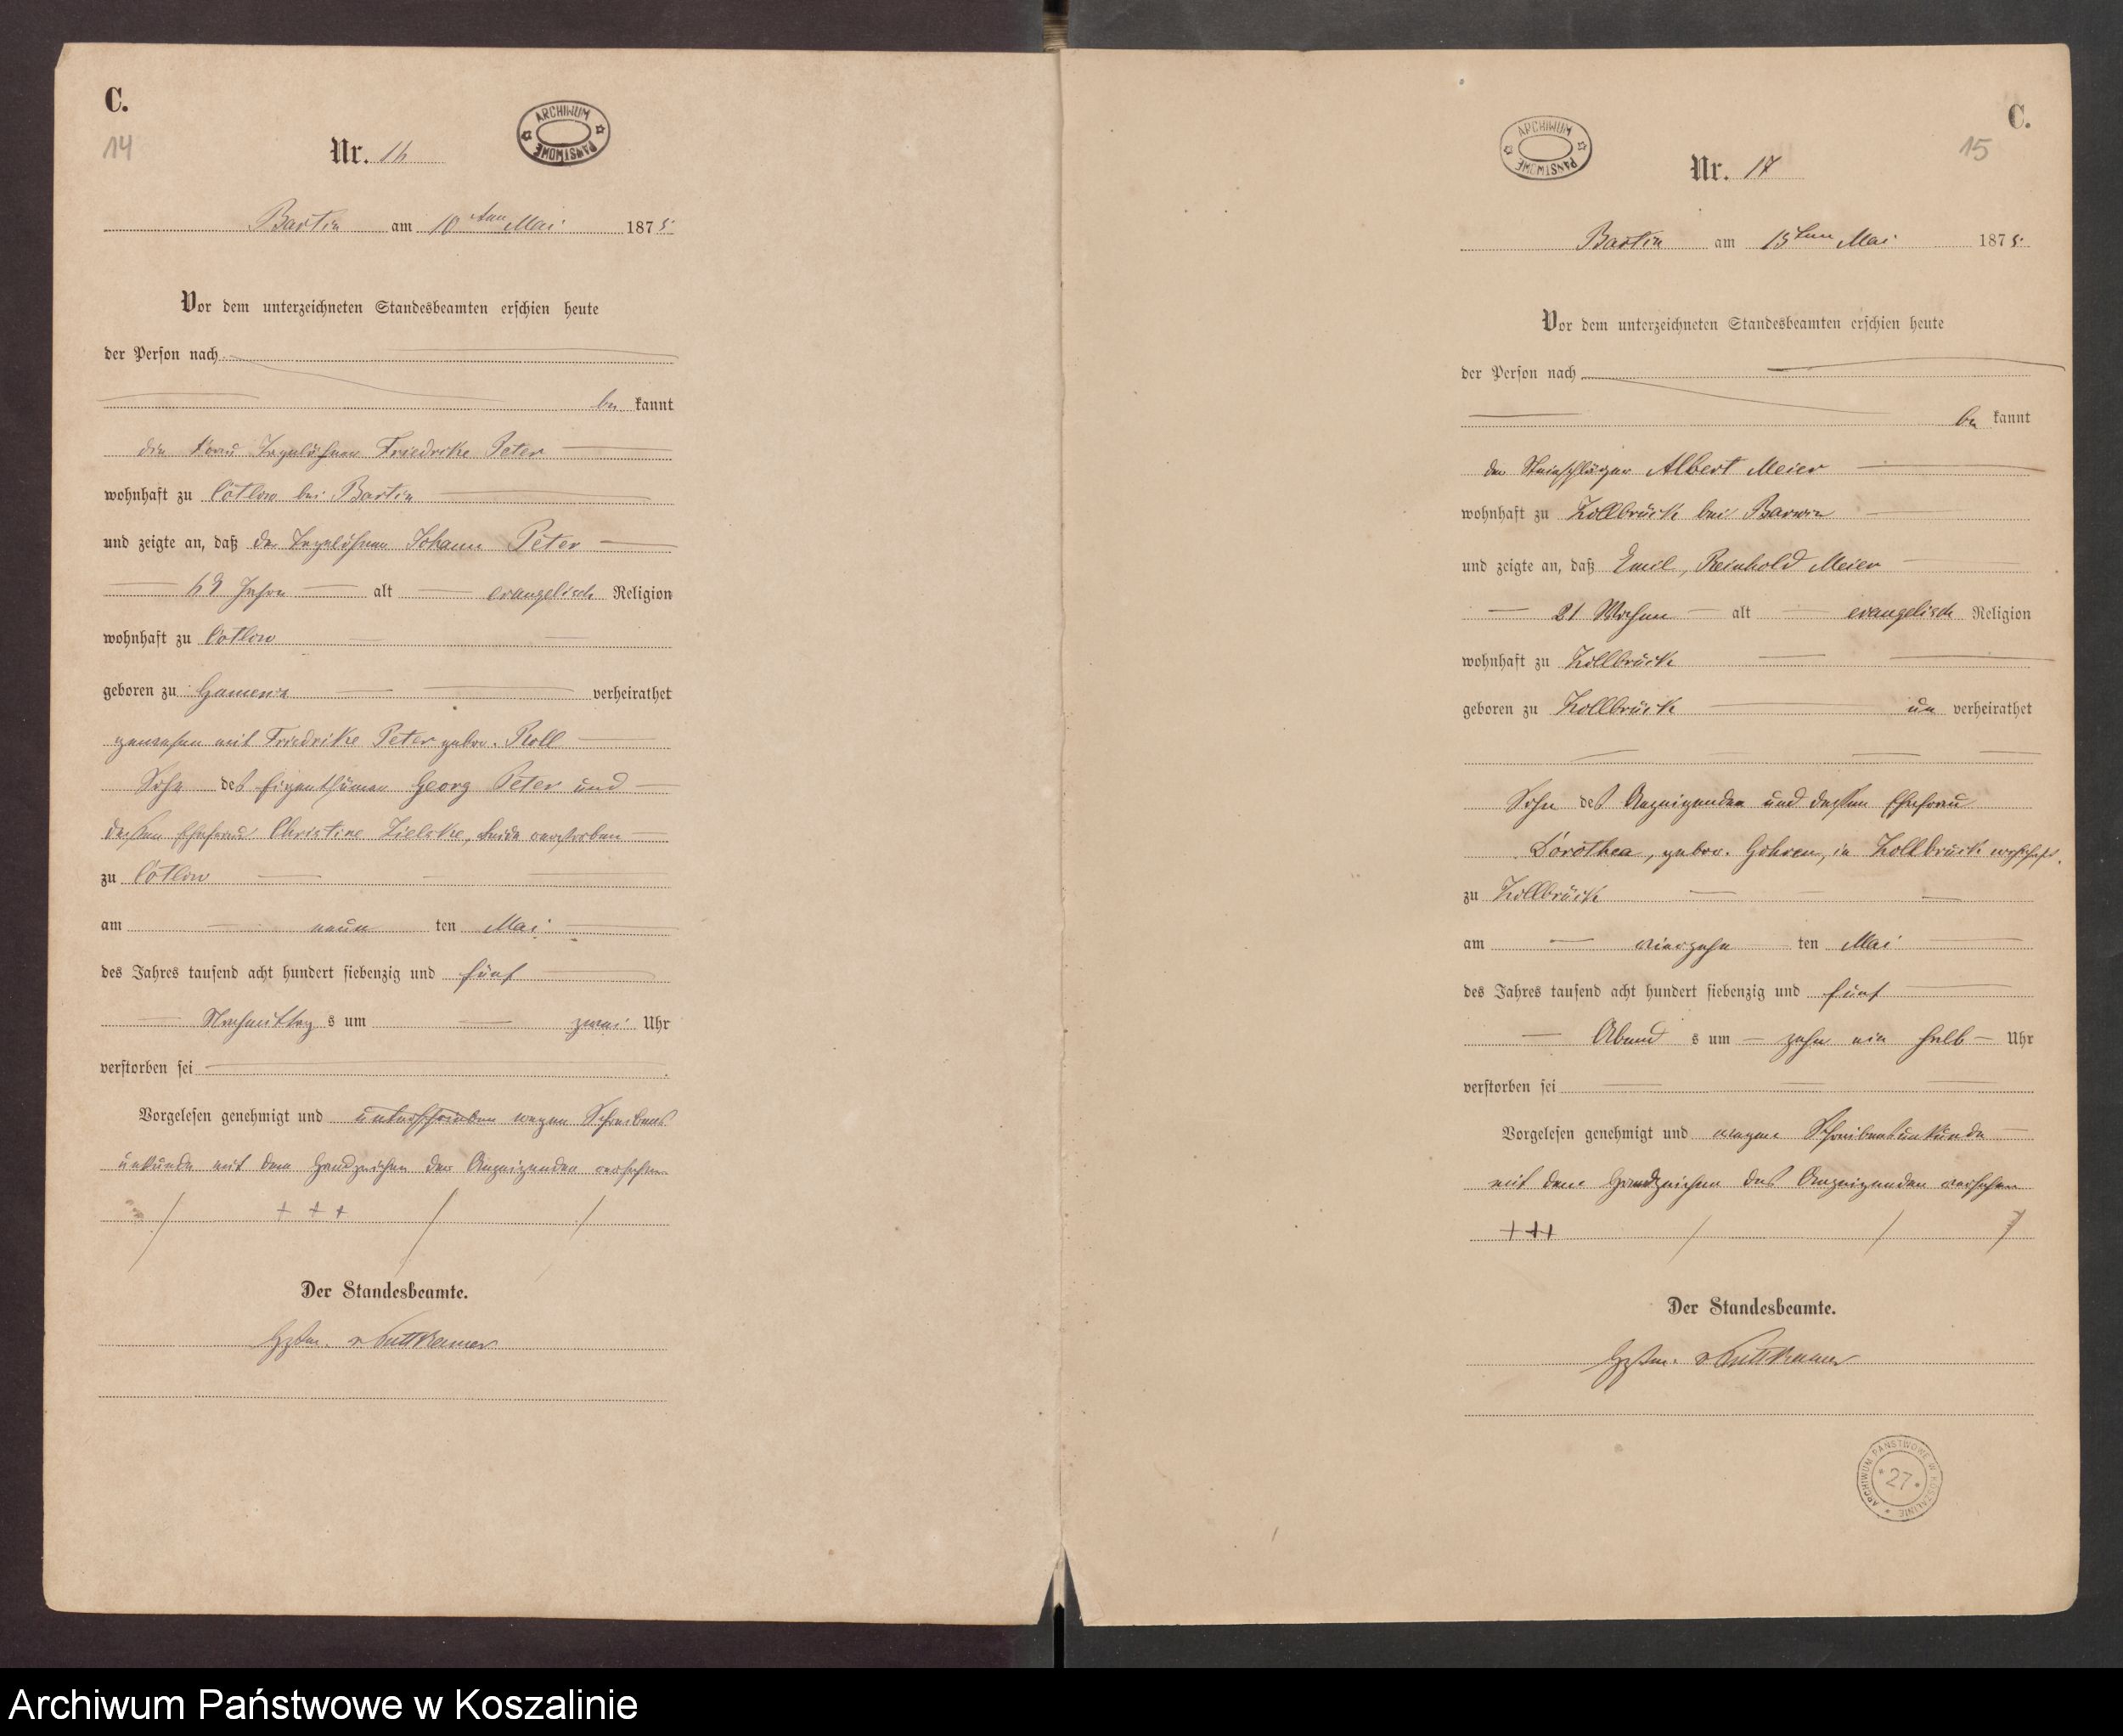 C.
14
Nr. 16
ARCHIWUM PAŃSTWOWE
Bartin am 10ten Mai 1875
Vor dem unterzeichneten Standesbeamten erschien heute
der Person nach
be kannt
die Frau Tagelöhner Friedrike Peter
wohnhaft zu Cotlow bei Bartin
und zeigte an, daß der Tagelöhner Johann Peter
Jahre alt evangelisch Religion
wohnhaft zu Cotlow
geboren zu verheirathet
gewesen mit Friedrike Peter gebor. Roll
Sohn des Eigenthümer Georg Peter und
dessen Ehefrau Christine Zielske, beide verstorben
zu Cotlow
am neun ten Mai
des Jahres tausend acht hundert siebenzig und fünf
Nachmittag s um zwei Uhr
verstorben sei
Vorgelesen genehmigt und unterschrieben wegen Schreibens
unkunde mit dem Handzeichen der Anzeigenden versehen
+ + +
Der Standesbeamte.
v Puttkamer
C.
15
Nr. 17
ARCHIWUM PAŃSTWOWE
Bartin am 15ten Mai 1875.
Vor dem unterzeichneten Standesbeamten erschien heute
der Person nach
be kannt
der Steinschläger Albert Meier
wohnhaft zu Zollbrück bei Barwin
und zeigte an, daß Emil, Reinhold Meier
21 Wochen alt evangelisch Religion
wohnhaft zu Zollbrück
geboren zu Zollbrück un verheirathet
Sohn des Anzeigenden und dessen Ehefrau
Dorothea, gebor. Gohren, in Zollbrück wohnhaft.
zu Zollbrück
am vierzehn ten Mai
des Jahres tausend acht hundert siebenzig und fünf
Abend s um zehn ein halb Uhr
verstorben sei
Vorgelesen genehmigt und wegen Schreibensunkunde
mit dem Handzeichen des Anzeigenden versehen
+++
Der Standesbeamte.
v Puttkamer
ARCHIWUM PAŃSTWOWE W KOSZALINIE
27
Archiwum Państwowe w Koszalinie